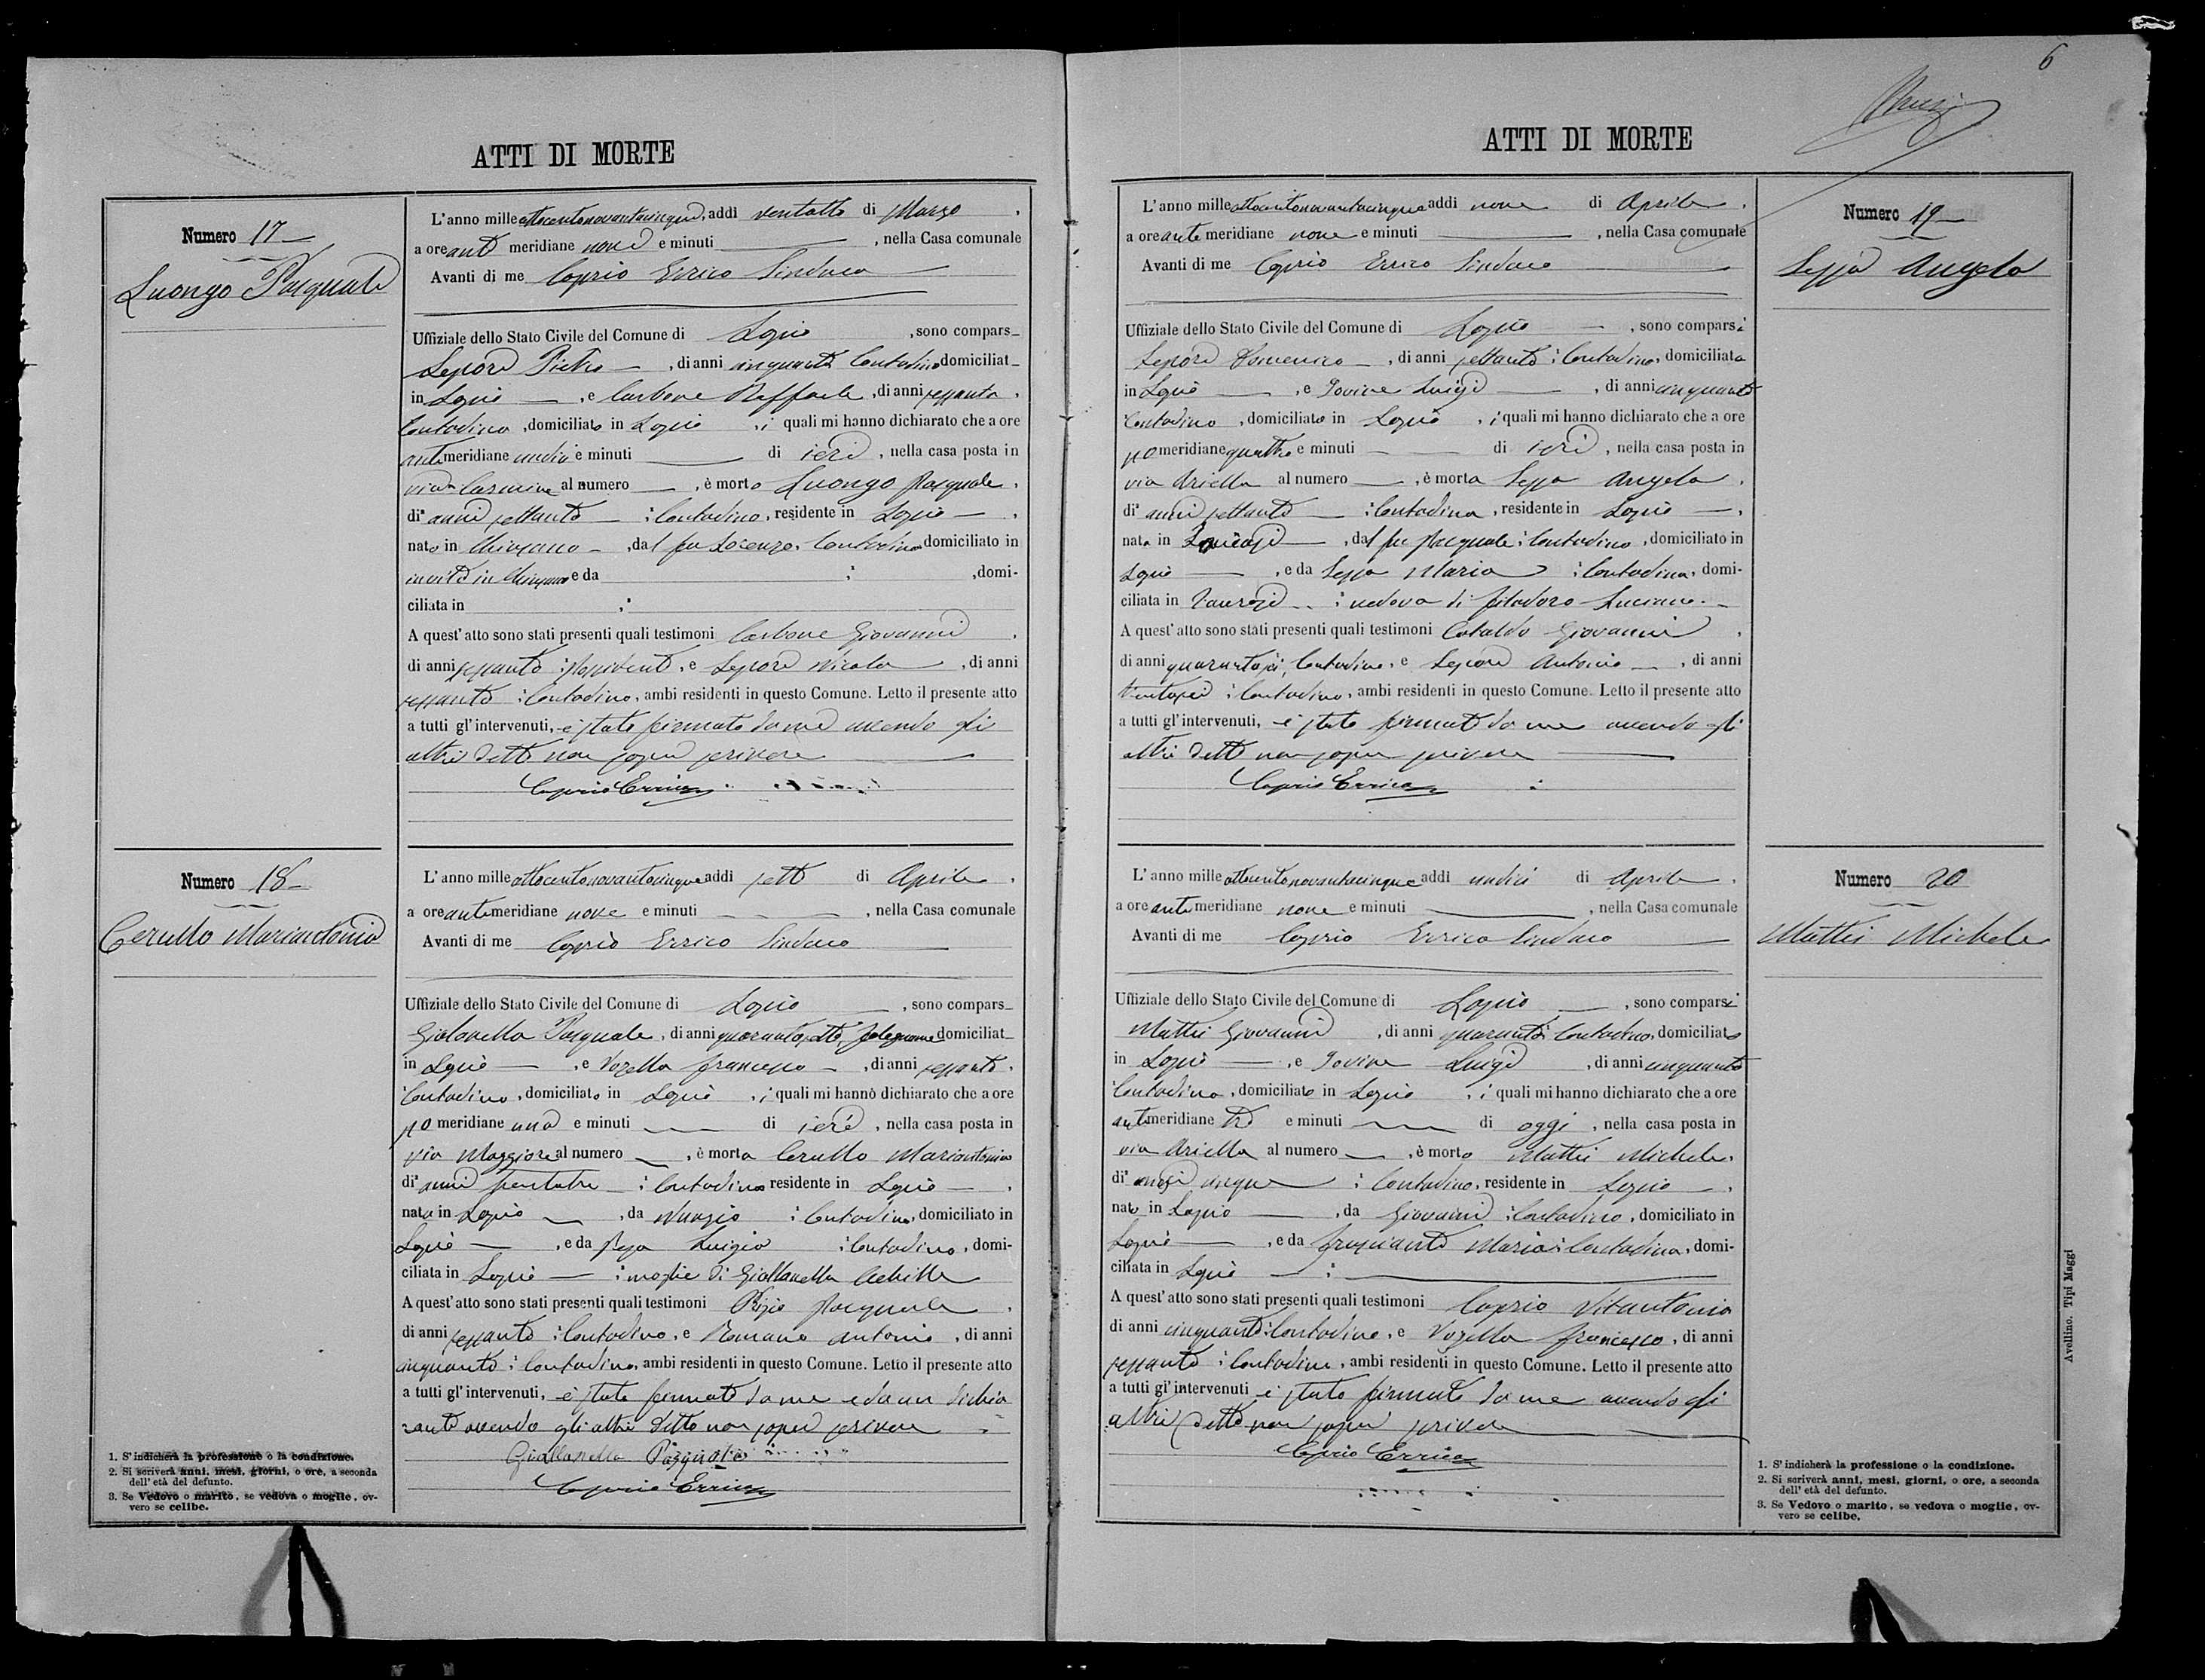 ATTI DI MORTE
Numero 17
Luongo Pasquale
L'anno mille ottocentonovantacinque, addì ventotto di Marzo .
a ore anti meridiane nove e minuti , nella Casa comunale
Avanti di me Caprio Errico Sindaco
Uffiziale dello Stato Civile del Comune di Lapio , sono compars
Lepore Pietro , di anni cinquanta Contadino domiciliat
in Lapio , e Carbone Raffaele , di anni sessanta .
Contadino , domiciliato in Lapio , i quali mi hanno dichiarato che a ore
anti meridiane undici e minuti di ieri , nella casa posta in
via Carmine al numero , è morto Luongo Pasquale .
di anni settanta Contadino , residente in Lapio .
nato in , dal fu Lorenzo, Contadino domiciliato in
in vita in e da , domi-
ciliata in
A quest'atto sono stati presenti quali testimoni Carbone Giovanni .
di anni sessanta , e Lepore Nicola , di anni
sessanta Contadino , ambi residenti in questo Comune. Letto il presente atto
a tutti gl'intervenuti, è stato firmato da me avendo gli
altri detto non saper scrivere
Caprio Errico
Numero 18
Cerullo Mariantonia
L'anno mille ottocentonovantacinque addì sette di Aprile .
a ore anti meridiane nove e minuti , nella Casa comunale
Avanti di me Caprio Errico Sindaco
Uffiziale dello Stato Civile del Comune di Lapio , sono compars
Giallonella Pasquale , di anni falegname domiciliat
in Lapio , e Vozella Francesco , di anni sessanta .
Contadino , domiciliato in Lapio , i quali mi hanno dichiarato che a ore
po meridiane una e minuti di ieri , nella casa posta in
via Maggiore al numero , è morta Cerullo Mariantonia
di anni Contadina residente in Lapio .
nata in Lapio , da Nunzio Contadino , domiciliato in
Lapio , e da Luigia Contadina , domi-
ciliata in Lapio moglie di Giallonella Achille
A quest'atto sono stati presenti quali testimoni Pasquale .
di anni sessanta Contadino , e Romano Antonio , di anni
cinquanta Contadino , ambi residenti in questo Comune. Letto il presente atto
a tutti gl'intervenuti, è stato firmato da me e da un dichia
rante avendo gli altri detto non saper scrivere
Giallonella Pasquale
Caprio Errico
1. S'indicherà la professione o la condizione.
2. Si scriverà anni, mesi, giorni, o ore, a seconda
dell' età del defunto.
3. Se Vedovo o marito, se vedova o moglie, ov-
vero se celibe.
6
ATTI DI MORTE
Numero 19
Seppa Angela
L'anno mille ottocentonovantacinque addì nove di Aprile .
a ore ante meridiane nove e minuti , nella Casa comunale
Avanti di me Caprio Errico Sindaco
Uffiziale dello Stato Civile del Comune di Lapio , sono comparsi
Lepore Domenico , di anni settanta Contadino , domiciliato
in Lapio , e Iovine Luigi , di anni cinquanta
Contadino , domiciliato in Lapio , i quali mi hanno dichiarato che a ore
po meridiane quattro e minuti di ieri , nella casa posta in
via Ariella al numero , è morta Seppa Angela .
di anni settanta Contadina , residente in Lapio .
nata in , dal fu Pasquale Contadino , domiciliato in
Lapio , e da Seppa Maria Contadina , domi-
ciliata in Taurasi vedova di Luciano
A quest'atto sono stati presenti quali testimoni Cataldo Giovanni .
di anni quarantasei Contadino , e Lepore Antonio , di anni
trentasei Contadino , ambi residenti in questo Comune. Letto il presente atto
a tutti gl'intervenuti, è stato firmato da me avendo gli
altri detto non saper scrivere
Caprio Errico
Numero 20
Mattis Michele
L'anno mille ottocentonovantacinque addì undici di Aprile .
a ore anti meridiane nove e minuti , nella Casa comunale
Avanti di me Caprio Errico Sindaco
Uffiziale dello Stato Civile del Comune di Lapio , sono comparsi
Mattis Giovanni , di anni quaranta Contadino , domiciliato
in Lapio , e Iovine Luigi , di anni cinquanta
Contadino , domiciliato in Lapio , i quali mi hanno dichiarato che a ore
anti meridiane tre e minuti di oggi , nella casa posta in
via Ariella al numero , è morto Mattis Michele .
di mesi cinque Contadino , residente in Lapio .
nato in Lapio , da Giovanni Contadino , domiciliato in
Lapio , e da Maria Contadina , domi-
ciliata in Lapio
A quest'atto sono stati presenti quali testimoni Caprio Vitantonio
di anni cinquanta Contadino , e Vozella Francesco , di anni
sessanta Contadino , ambi residenti in questo Comune. Letto il presente atto
a tutti gl'intervenuti è stato firmato da me avendo gli
altri detto non saper scrivere
Caprio Errico
1. S'indicherà la professione o la condizione.
2. Si scriverà anni, mesi, giorni, o ore, a seconda
dell' età del defunto.
3. Se Vedovo o marito, se vedova o moglie, ov-
vero se celibe.
Avellino. Tipi Maggi